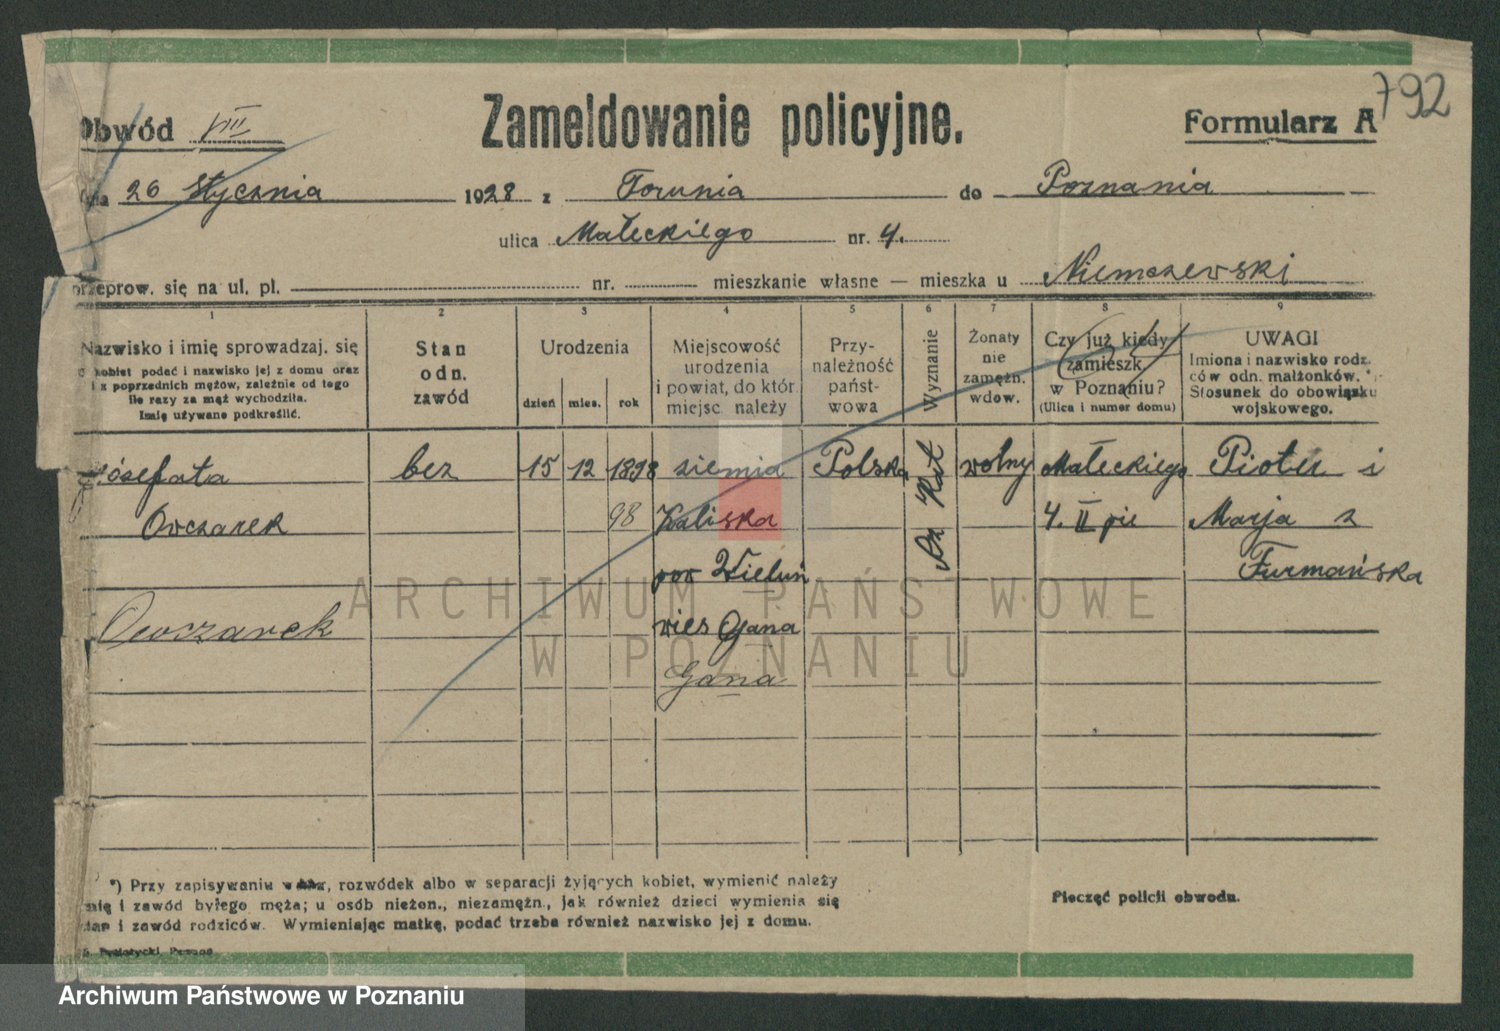 792
Obwód VIII
Zameldowanie policyjne.
Formularz A
26 Stycznia 1928 z Torunia do Poznania
ulica Małeckiego nr. 4.
przeprow. się na ul. pl. nr. mieszkanie własne — mieszka u Niemczewski
1 2 3 4 5 6 7 8 9
Nazwisko i imię sprowadzaj. się
kobiet podać i nazwisko jej z domu oraz
i z poprzednich mężów, zależnie od tego
ile razy za mąż wychodziła.
Imię używane podkreślić.
Stan
odn.
zawód
Urodzenia
dzień mies. rok
Miejscowość
urodzenia
i powiat, do któr.
miejsc. należy
Przy-
należność
państ-
wowa
Wyznanie
Żonaty
nie
zamężn.
wdow.
Czy już kiedy
zamieszk.
w Poznaniu?
(Ulica i numer domu)
UWAGI
Imiona i nazwisko rodz.
ców odn. małżonków. *
Stosunek do obowiązku
wojskowego.
Józefata bez 15 12 1898 ziemia Polska Rz Kat wolny Małeckiego Piotr i
Owczarek 98 Kaliska 4. II pię Marja z
pow Wieluń Furmańska
Owczarek wieś Gana
Gana
ARCHIWUM PAŃSTWOWE
W POZNANIU
*) Przy zapisywaniu wdów, rozwódek albo w separacji żyjących kobiet, wymienić należy
imię i zawód byłego męża; u osób nieżon., niezamężn., jak również dzieci wymienia się
stan i zawód rodziców. Wymieniając matkę, podać trzeba również nazwisko jej z domu.
Pieczęć policji obwodu.
Archiwum Państwowe w Poznaniu